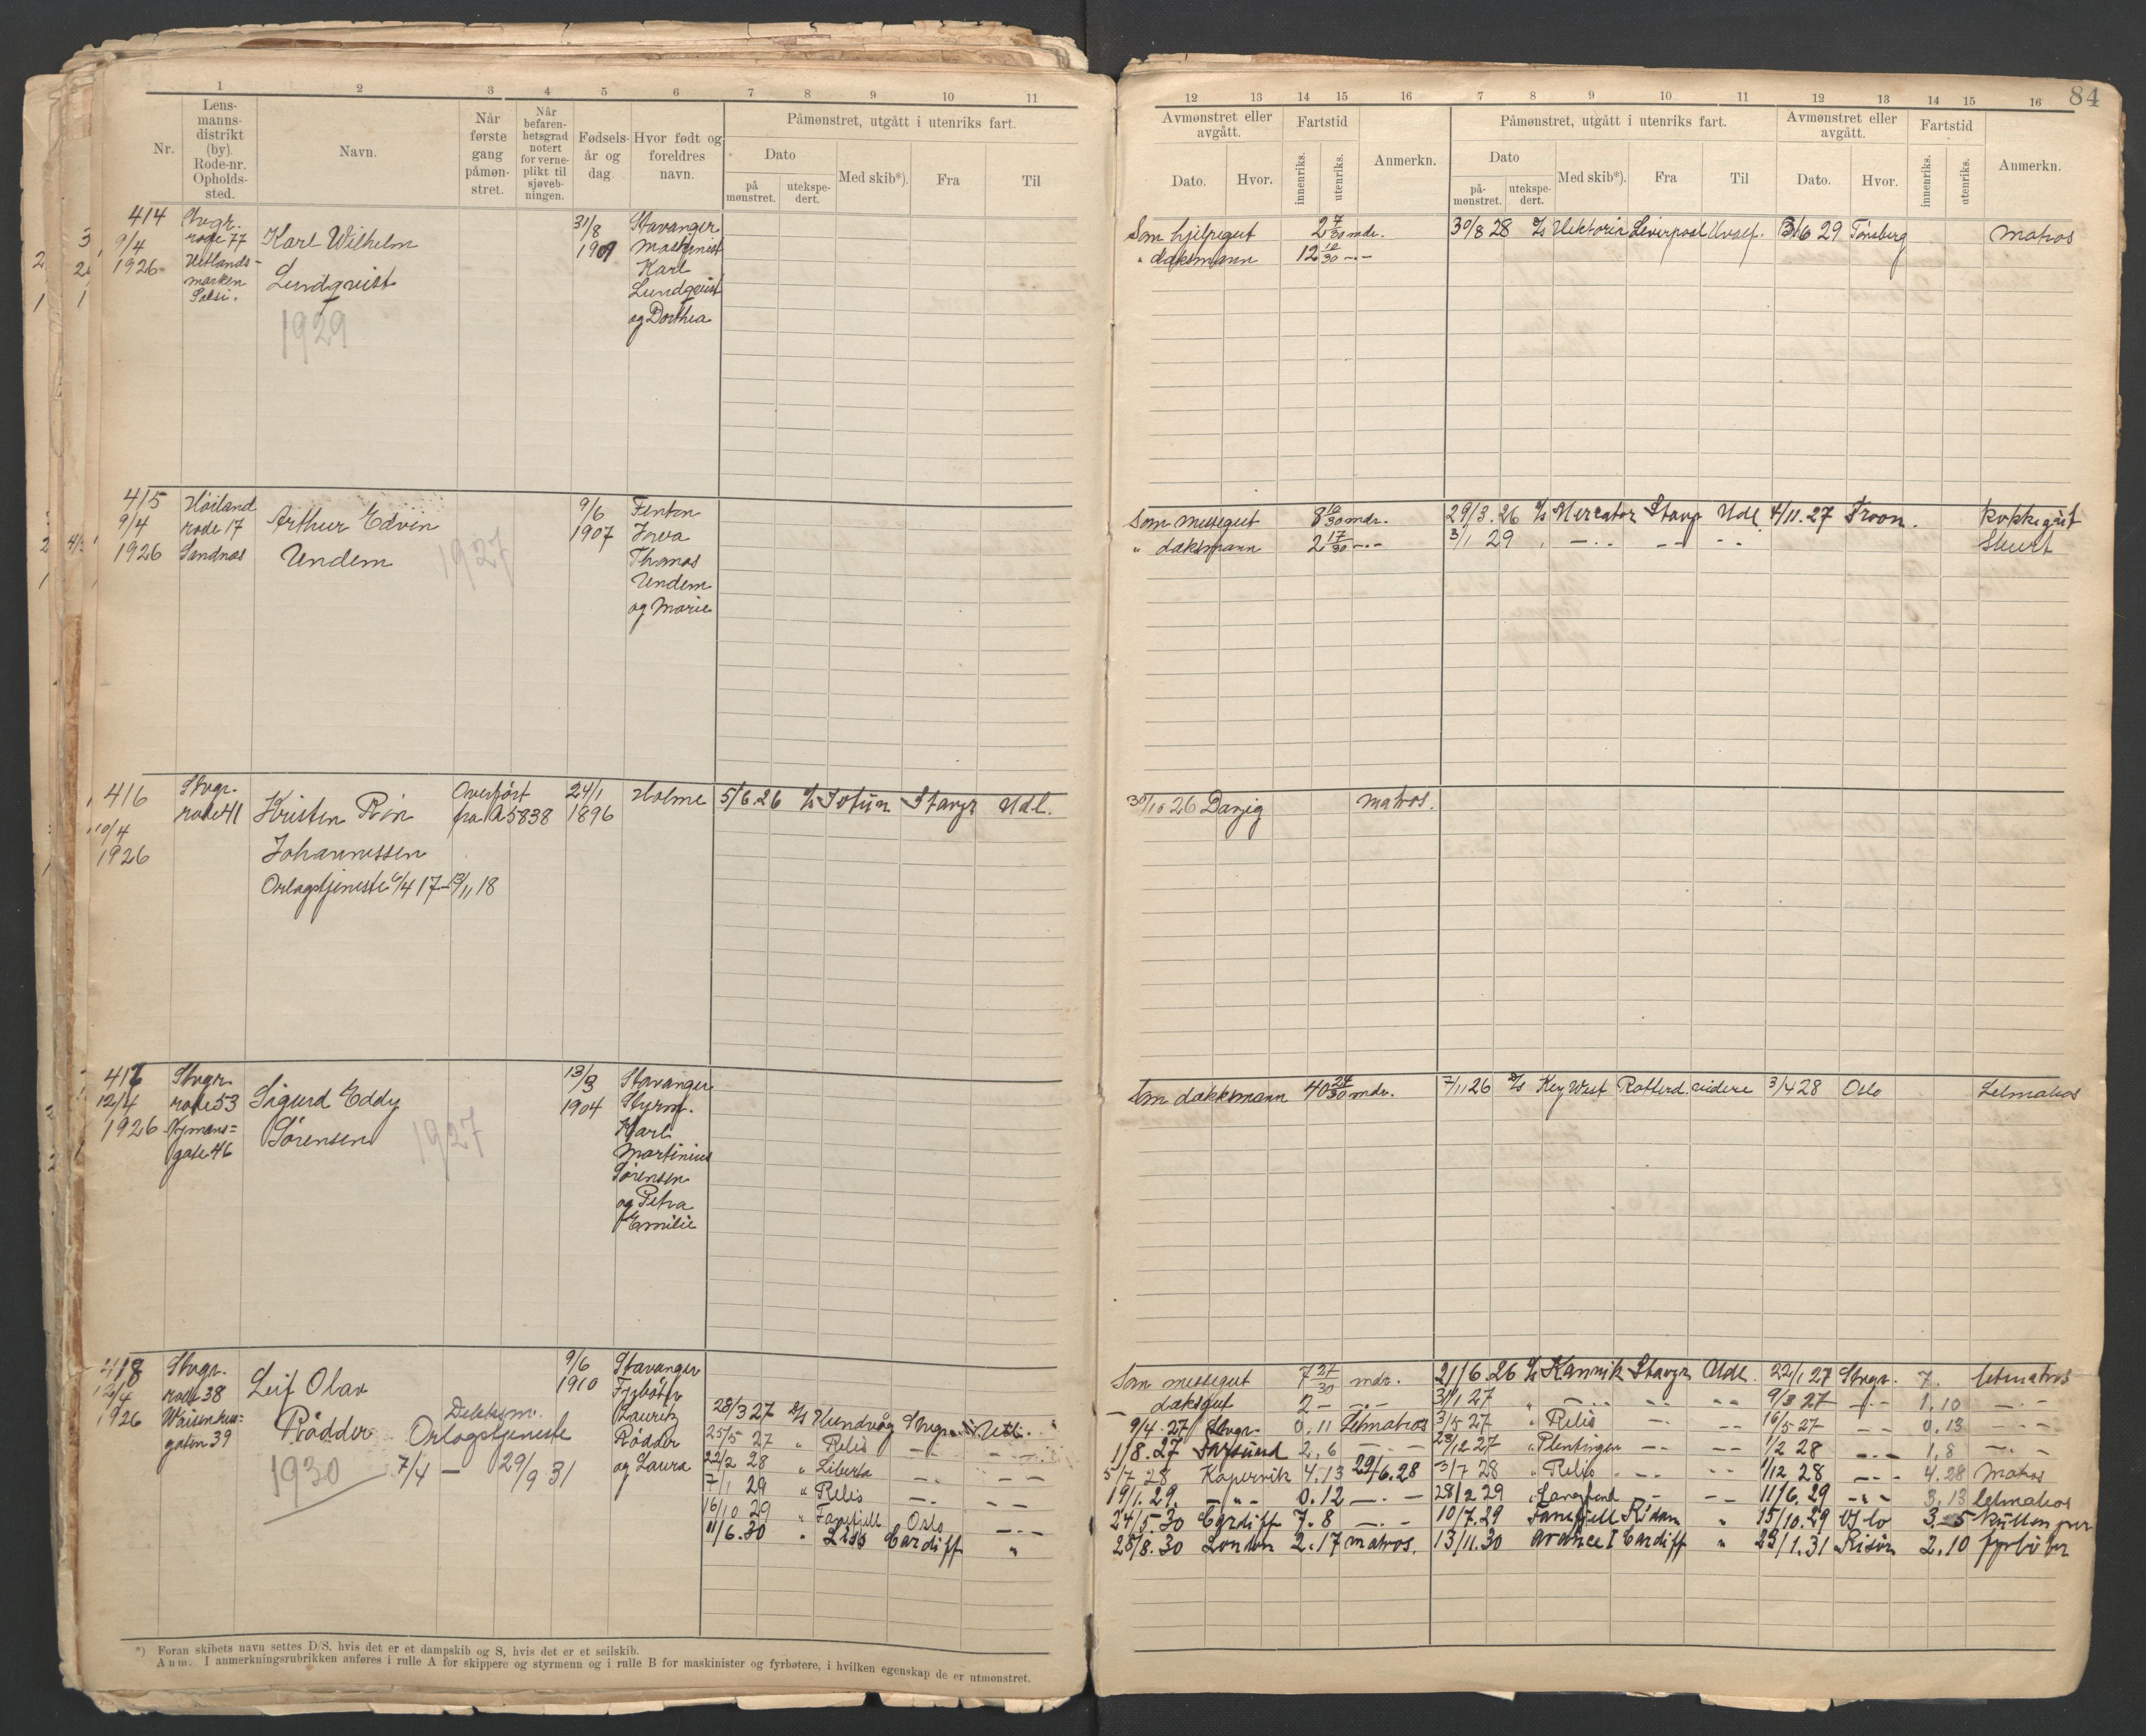 1 2 3 4 5 6 7 8 9 10 11
Nr.
Lens-
manns-
distrikt
(by).
Rode-nr.
Opholds-
sted.
Navn.
Når
første
gang
påmøn-
stret.
Når
befaren-
hetsgrad
notert
for verne-
plikt til
sjøveb-
ningen.
Fødsels-
år og
dag.
Hvor født og
foreldres
navn.
Påmønstret, utgått i utenriks fart.
Dato
på
mønstret.
utekspe-
dert.
Med skib*).
Fra
Til
414
9/4
1926
Stvgr.
rode 77
marken
Karl Wilhelm
Lundqvist
1929
31/8
1909
Stavanger
Maskinist
Karl
Lundqvist
og Dorthea
415
9/4
1926
Høiland
rode 17
Sandnes
Arthur Edvin
Undem
1927
9/6
1907
Thomas
Undem
og Marie
416
10/4
1926
Stvgr.
rode 41
Kristen
Johannessen
Orlogstjeneste 6/4 17 - 13/11 18
Overført
fra A 5838
24/1
1896
Holme
5/6.26 Jotun Stavgr Udl.
417
12/4
1926
Stvgr.
rode 53
gate 46
Sigurd Eddy
Sørensen
1927
13/3
1904
Stavanger
Styrm.
Karl
Martinius
Sørensen
og Petra
Emilie
418
12/4
1926
Stvgr.
rode 38
gaten 39
Leif Olav
Rødder
Dekksm.
Orlogstjeneste
7/4 - 29/9 31
1930
9/6
1910
Stavanger
Fyrbøter
Lauritz
Rødder
og Laura
28/3 27 D/S Hundvåg Stvgr. Utl.
25/5 27 " Relis
22/2 28 " Liberta
7/1 29 " Relis
16/10 29 " Fanefjell Oslo
11/6.30 " Liss Cardiff "
*) Foran skibets navn settes D/S, hvis det er et dampskib og S, hvis det er et seilskib.
Anm. I anmerkningsrubrikken anføres i rulle A for skippere og styrmenn og i rulle B for maskinister og fyrbøtere, i hvilken egenskap de er utmønstret.
84
12 13 14 15 16 7 8 9 10 11 12 13 14 15 16
Avmønstret eller
avgått.
Dato.
Hvor.
Fartstid
innenriks.
utenriks.
Anmerkn.
Påmønstret, utgått i utenriks fart.
Dato
på-
mønstret.
utekspe-
dert.
Med skib*).
Fra
Til
Avmønstret eller
avgått.
Dato.
Hvor.
Fartstid
innenriks.
utenriks.
Anmerkn.
Som hjelpegut 2 7/30 mdr. 30/8 28 Viktoria Liverpool Hvalf. 3/6 29 Tønsberg Matros
" dæksmann 12 10/30 - -
Som messegut 8 16/30 mdr. 29/3.26 Mercator Stavg Udl. 4/11.27 Troon. kokkegut
" dæksmann 2 17/30 - - 3/1 29 Stuert
30/10 26 Danzig matros.
Som dækksmann 40 29/30 mdr. 7/11 26 D/S Key West Rotterd. videre 3/4 28 Oslo Letmatros
Som messegut 7 27/30 mdr. 21/6.26 Kannik Stavgr Udl. 22/1 27 Stvgr. 7. letmatros
dæksgut 2 - 31/1 27 " 9/3 27 1.10
9/4.27 Stvgr. 0.11 Letmatros 3/5 27 " Relis 16/5 27 0.13
1/8.27 2.6 28/12 27 1/2 28 1.8
5/7 28 Kopervik 4.13 29/6.28 3/7 28 " Relis 1/12 28 4.28 Matros
19/1.29. 0.12 28/2 29 11/6.29 3.13 letmatros
24/5.30 Cardiff 7.8 10/7.29 Fanefjell " 15/10.29 Oslo 3.5
28/8.30 London 2.17 matros. 13/11.30 Avance I Cardiff " 23/1.31 Risør 2.10 fyrbøter